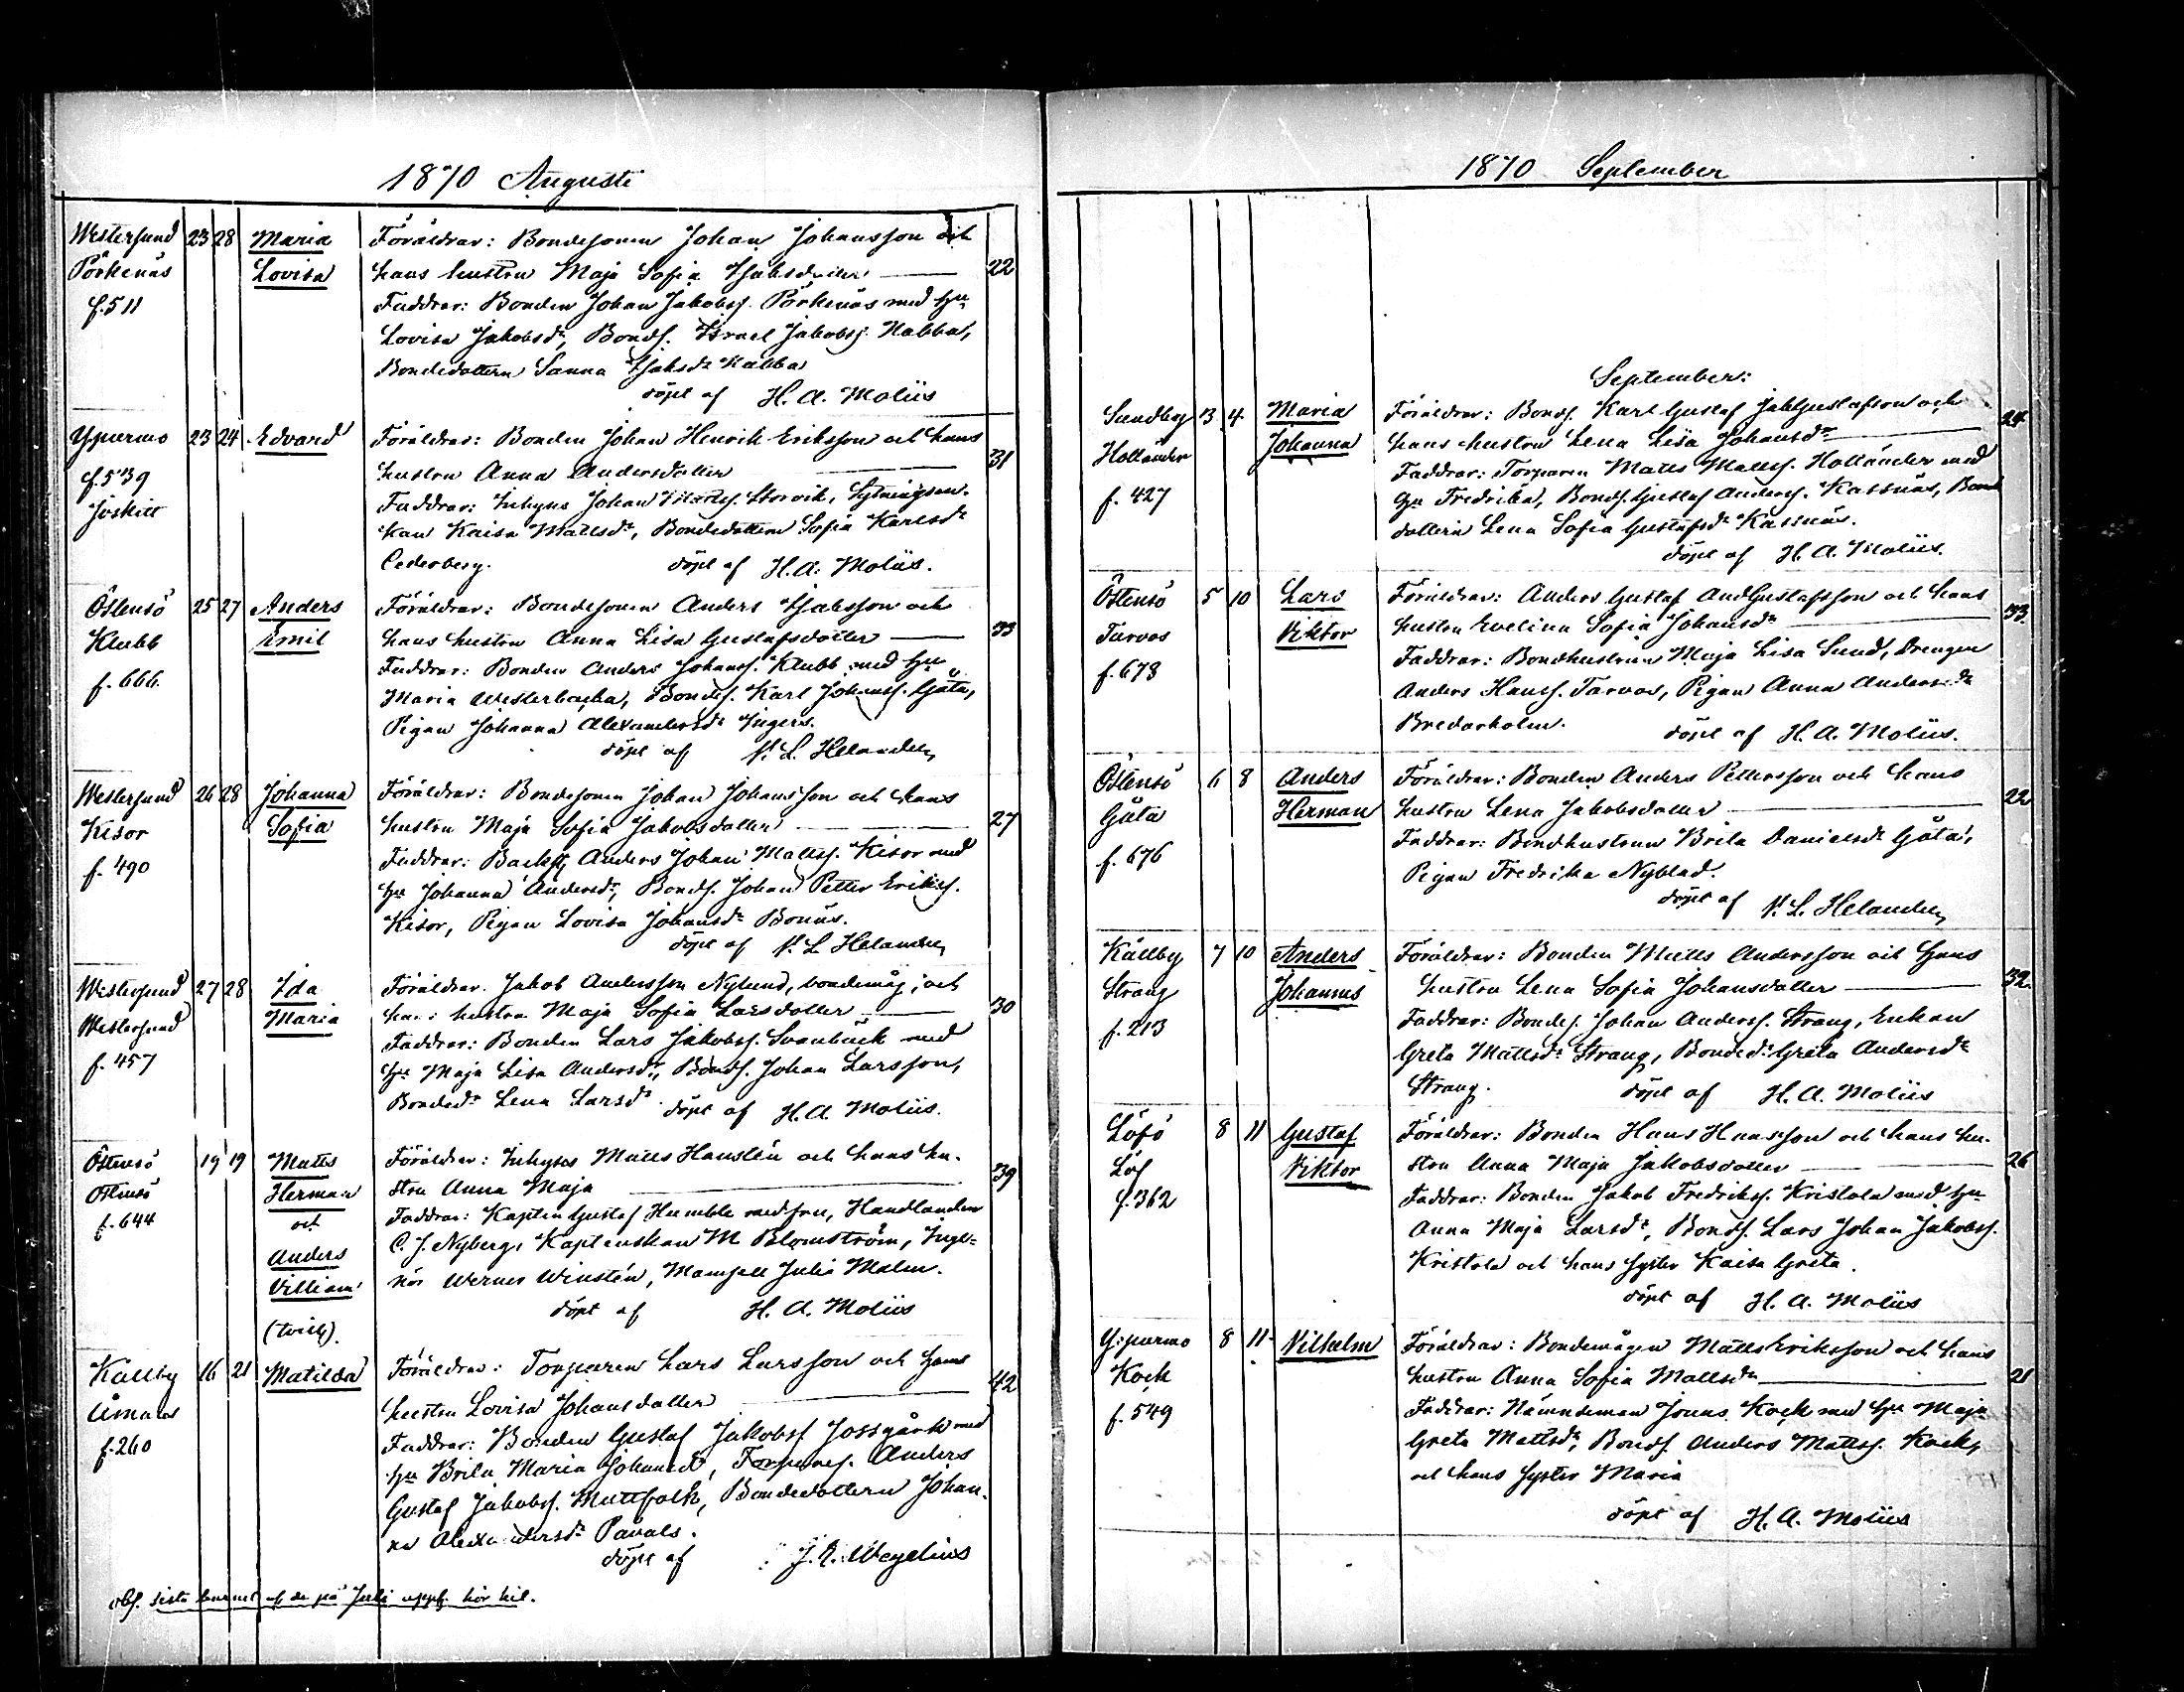 1870 Augusti
Westersund 23 28 Maria Föräldrar: Bondesonen Johan Johansson och
Pörkenäs Lovisa hans hustru Maja Sofia 22
f. 511 Faddrar: Bonden Johan Jakobss. Pörkenäs med hu
Lovisa Jakobsdr, Bonds. Israel Jakobss. Nabba,
Bondedottern Sanna Nabba
döpt af H. A. Moliis
Ypurmo 23 24 Edvard Föräldrar: Bonden Johan Henrik Eriksson och hans
f. 539 hustru Anna Andersdotter 31
Faddrar: Inhyses Johan Storvik, Sytningsen-
kan Kaisa Mattsdr, Bondedottern Sofia Karlsdr
Cederberg. döpt af H. A. Moliis.
Östensö 25 27 Anders Föräldrar: Bondesonen Anders och
Klubb Emil hans hustru Anna Lisa Gustafsdotter 33
f. 666. Faddrar: Bonden Anders Johanss. Klubb med hu
Maria Westerbacka, Bondes. Karl Johanss. Gäta,
Pigan Johanna Alexandersdr Ingers.
döpt af K. L. Helander
Westersund 26 28 Johanna Föräldrar: Bondesonen Johan Johansson och hans
Kisor Sofia hustru Maja Sofia Jakobsdotter 27
f. 490 Faddrar: Anders Johan Mattss. Kisor med
hu Johanna Andersdr, Bonds. Johan Petter Erikss.
Kisor, Pigan Lovisa Johansdr Bonäs.
döpt af K. L. Helander
Westersund 27 28 Ida Föräldrar. Jakob Andersson Nylund, bondemåg, och
Westersund Maria hans hustru Maja Sofia Larsdotter 30
f. 457 Faddrar: Bonden Lars Jakobss. Svanbäck med
hu Maja Lisa Andersdr, Bonds. Johan Larsson,
Bondedr Lena Larsdr. döpt af H. A. Moliis.
Östensö 19 19 Matts Föräldrar: Inhyses Matts Hanslin och hans hu-
Östensö Herman stru Anna Maja 39
f. 644 och Faddrar: Kapten Gustaf Humble med fru, Handlanden
Anders C. J. Nyberg, Kaptenskan M Blomström, Inge-
Villiam niör Werner Winstén, Mamsell Julia Malm.
döpt af H. A. Moliis
(tvill).
Källby 16 21 Matilda Föräldrar: Torparen Lars Larsson och hans
hustru Lovisa Johansdotter 42
f. 260 Faddrar: Bonden Gustaf Jakobss Jossgårk med
hu Brita Maria Johansdr, Torpares. Anders
Gustaf Jakobss. Mattfolk, Bondedottern Johan-
na Alexandersdr Pavals.
döpt af J. R. Wegelius
obs. sista barnet af de på Juli uppt. hör hit.
1870 September
September:
Sundby 3 4 Maria Föräldrar: Bonds. Karl Gustaf JakGustafson och 24
Holländer Johanna hans hustru Lena Lisa Johansdr
f. 427 Faddrar: Torparen Matts Mattss. Holländer med
hu Fredrika, Bonds. Gustaf Anderss. Kassnäs, Bond
dottern Lena Sofia Gustafsdr Kassnäs.
döpt af H. A. Moliis.
Östensö 5 10 Lars Föräldrar: Anders Gustaf AndGustafsson och hans
Tarvos Viktor hustru Evelina Sofia Johansdr 33
f. 673 Faddrar: Bondhustrun Maja Lisa Sund, Drengen
Anders Hanss. Tarvos, Pigan Anna Andersdr
Bredarholm. döpt af H. A. Moliis.
Östensö 6 8 Anders Föräldrar: Bonden Anders Pettersson och hans
Gäta Herman hustru Lena Jakobsdotter 22
f. 676 Faddrar: Bondhustrun Brita Danielsdr Gäta,
Pigan Fredrika Nyblad.
döpt af K. L. Helander
Källby 7 10 Anders Föräldrar: Bonden Matts Andersson och hans
Strang Johannes hustru Lena Sofia Johansdotter 32.
f. 213 Faddrar: Bondes. Johan Anderss. Strang, Enkan
Greta Mattsdr Strang, Bondedr Greta Andersdr
Strang. döpt af H. A. Moliis
Löfö 8 11 Gustaf Föräldrar: Bonden Hans Hansson och hans hu-
Löf Viktor stru Anna Maja Jakobsdotter 26
f. 362 Faddrar: Bonden Jakob Fredrikss. Kristola med hu
Anna Maja Larsdr, Bonds. Lars Johan Jakobss.
Kristola och hans syster Kaisa Greta.
döpt af H. A. Moliis
Y:purmo 8 11 Vilhelm Föräldrar: Bondemågen Matts Eriksson och hans
Kock hustru Anna Sofia Mattsdr 21
f. 549 Faddrar: Nämndeman Jonas Kock med hu Maja
Greta Mattsdr, Bonds. Anders Mattss. Kock,
och hans syster Maria
döpt af H. A. Moliis